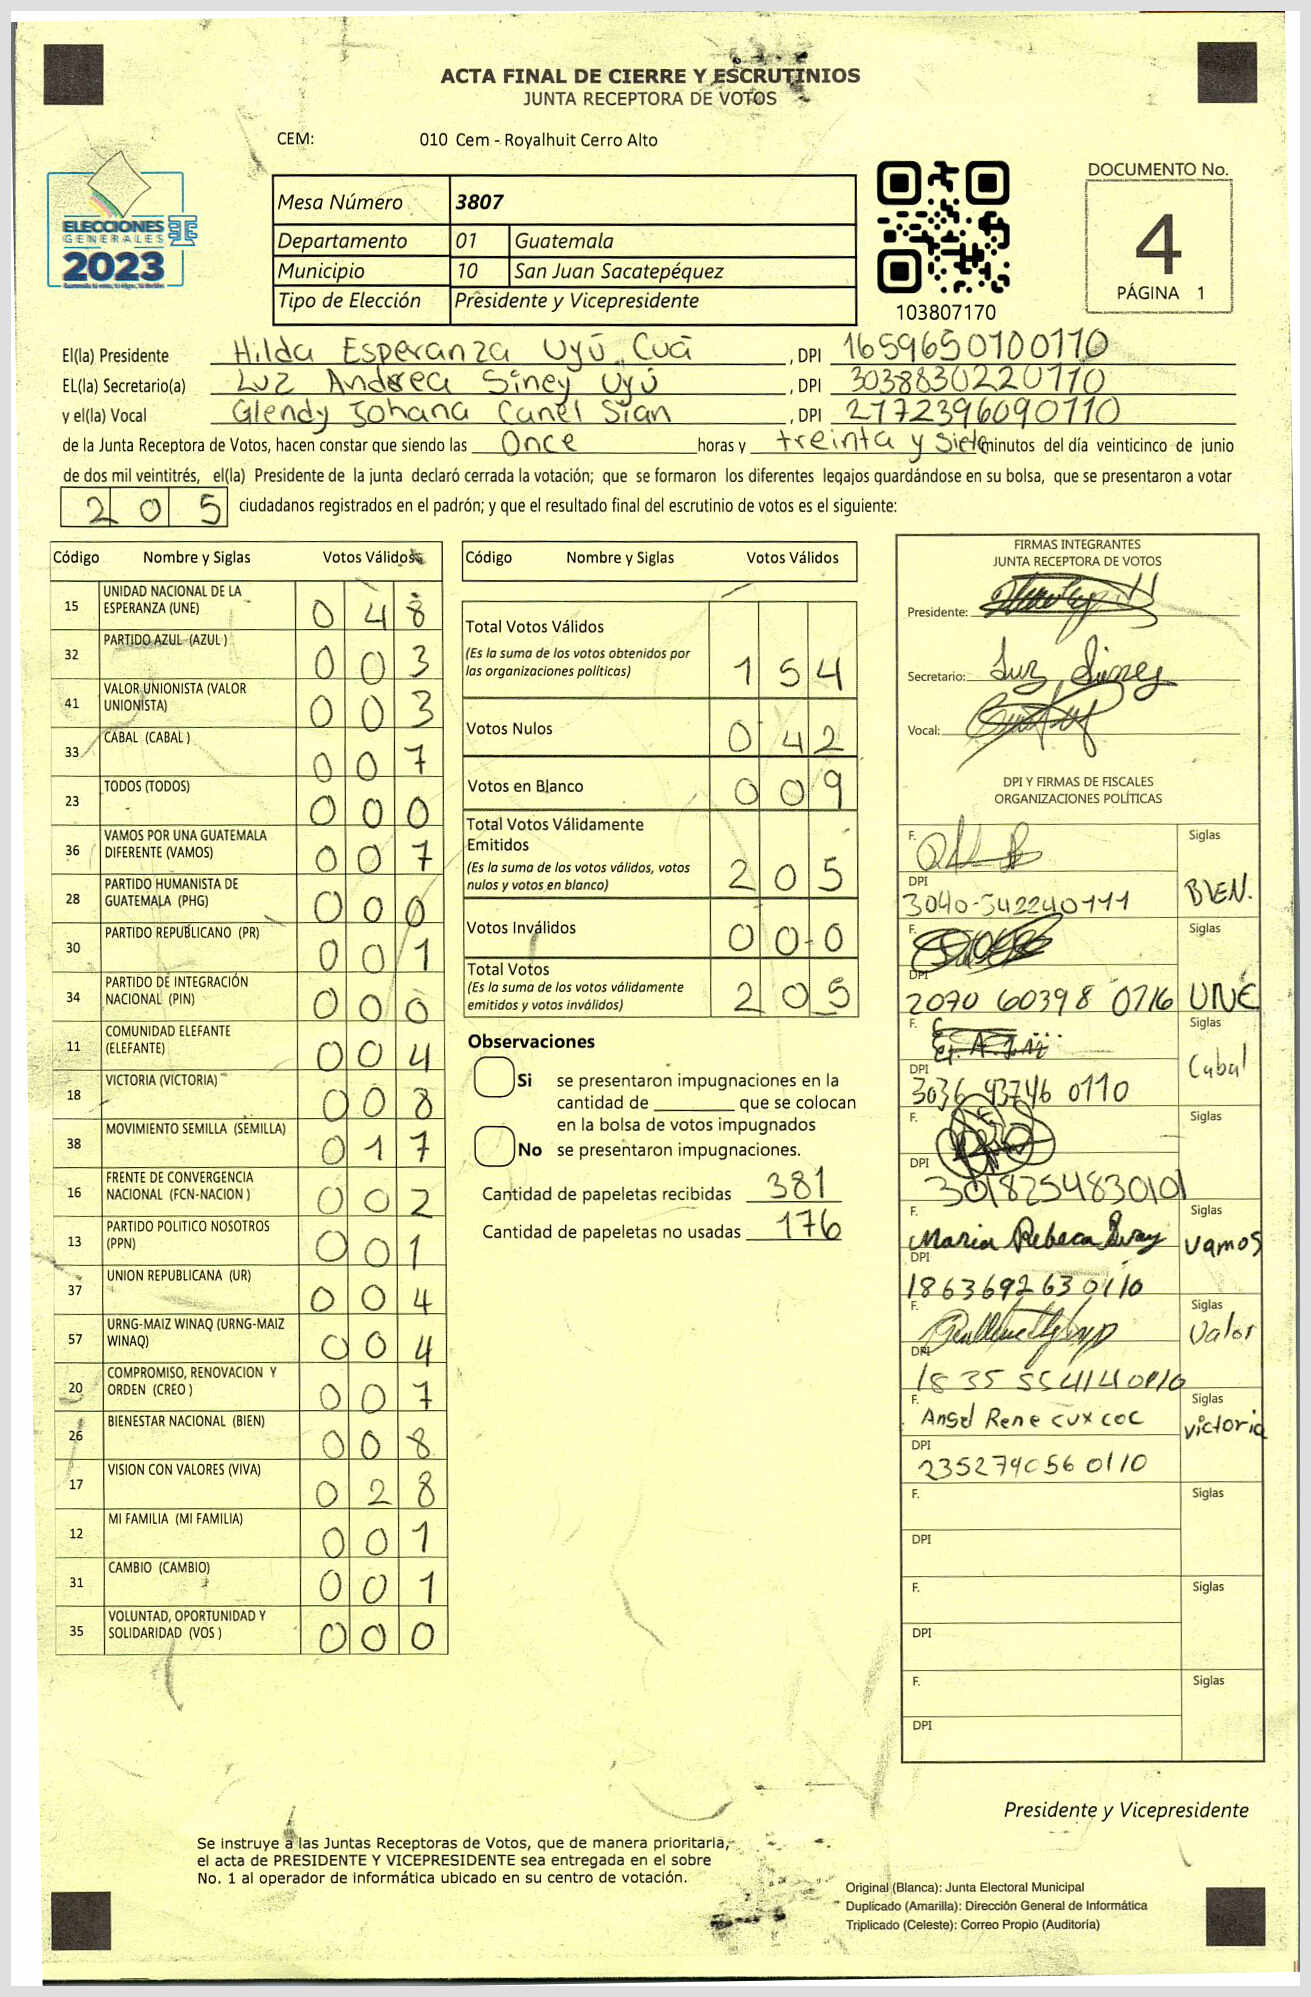 ACTA FINAL DE CIERRE Y ESCRUTINIOS
JUNTA RECEPTORA DE VOTOS
CEM: 010 Cem - Royalhuit Cerro Alto
ELECCIONES
GENERALES
2023
Mesa Número 3807
Departamento 01 Guatemala
Municipio 10 San Juan Sacatepéquez
Tipo de Elección Presidente y Vicepresidente
103807170
DOCUMENTO No.
4
PÁGINA 1
El(la) Presidente Hilda Esperanza Uyú Cuá , DPI 1659650100110
EL(la) Secretario(a) Luz Andrea Siney Uyú , DPI 3038830220110
y el(la) Vocal Glendy Johana Canel Sian , DPI 2172396090110
de la Junta Receptora de Votos, hacen constar que siendo las Once horas y treinta y siete minutos del día veinticinco de junio
de dos mil veintitrés, el(la) Presidente de la junta declaró cerrada la votación; que se formaron los diferentes legajos guardándose en su bolsa, que se presentaron a votar
205 ciudadanos registrados en el padrón; y que el resultado final del escrutinio de votos es el siguiente:
Código Nombre y Siglas Votos Válidos
15 UNIDAD NACIONAL DE LA ESPERANZA (UNE) 048
32 PARTIDO AZUL (AZUL ) 003
41 VALOR UNIONISTA (VALOR UNIONISTA) 003
33 CABAL (CABAL ) 007
23 TODOS (TODOS) 000
36 VAMOS POR UNA GUATEMALA DIFERENTE (VAMOS) 007
28 PARTIDO HUMANISTA DE GUATEMALA (PHG) 000
30 PARTIDO REPUBLICANO (PR) 001
34 PARTIDO DE INTEGRACIÓN NACIONAL (PIN) 000
11 COMUNIDAD ELEFANTE (ELEFANTE) 004
18 VICTORIA (VICTORIA) 008
38 MOVIMIENTO SEMILLA (SEMILLA) 017
16 FRENTE DE CONVERGENCIA NACIONAL (FCN-NACION ) 002
13 PARTIDO POLITICO NOSOTROS (PPN) 001
37 UNION REPUBLICANA (UR) 004
57 URNG-MAIZ WINAQ (URNG-MAIZ WINAQ) 004
20 COMPROMISO, RENOVACION Y ORDEN (CREO ) 007
26 BIENESTAR NACIONAL (BIEN) 008
17 VISION CON VALORES (VIVA) 028
12 MI FAMILIA (MI FAMILIA) 001
31 CAMBIO (CAMBIO) 001
35 VOLUNTAD, OPORTUNIDAD Y SOLIDARIDAD (VOS ) 000
Código Nombre y Siglas Votos Válidos
Total Votos Válidos 154
(Es la suma de los votos obtenidos por
las organizaciones políticas)
Votos Nulos 042
Votos en Blanco 009
Total Votos Válidamente
Emitidos 205
(Es la suma de los votos válidos, votos
nulos y votos en blanco)
Votos Inválidos 000
Total Votos 205
(Es la suma de los votos válidamente
emitidos y votos inválidos)
Observaciones
Si se presentaron impugnaciones en la
cantidad de ________ que se colocan
en la bolsa de votos impugnados
No se presentaron impugnaciones.
Cantidad de papeletas recibidas 381
Cantidad de papeletas no usadas 176
FIRMAS INTEGRANTES
JUNTA RECEPTORA DE VOTOS
Presidente:
Secretario: Luz Siney
Vocal:
DPI Y FIRMAS DE FISCALES
ORGANIZACIONES POLÍTICAS
F. Siglas
DPI 3040-542240111 BIEN.
F. Siglas
DPI 2070 60398 0716 UNE
F. Siglas
DPI 3036 43746 0110 Cabal
F. Siglas
DPI 3018254830101
F. Maria Rebeca Siglas
DPI 1863692630110 Vamos
F. Siglas
DPI 1835 554140110 Valor
F. Angel Rene cux coc Siglas
DPI 2352790560110 victoria
F. Siglas
DPI
F. Siglas
DPI
F. Siglas
DPI
Presidente y Vicepresidente
Se instruye a las Juntas Receptoras de Votos, que de manera prioritaria,
el acta de PRESIDENTE Y VICEPRESIDENTE sea entregada en el sobre
No. 1 al operador de informática ubicado en su centro de votación.
Original (Blanca): Junta Electoral Municipal
Duplicado (Amarilla): Dirección General de Informática
Triplicado (Celeste): Correo Propio (Auditoría)